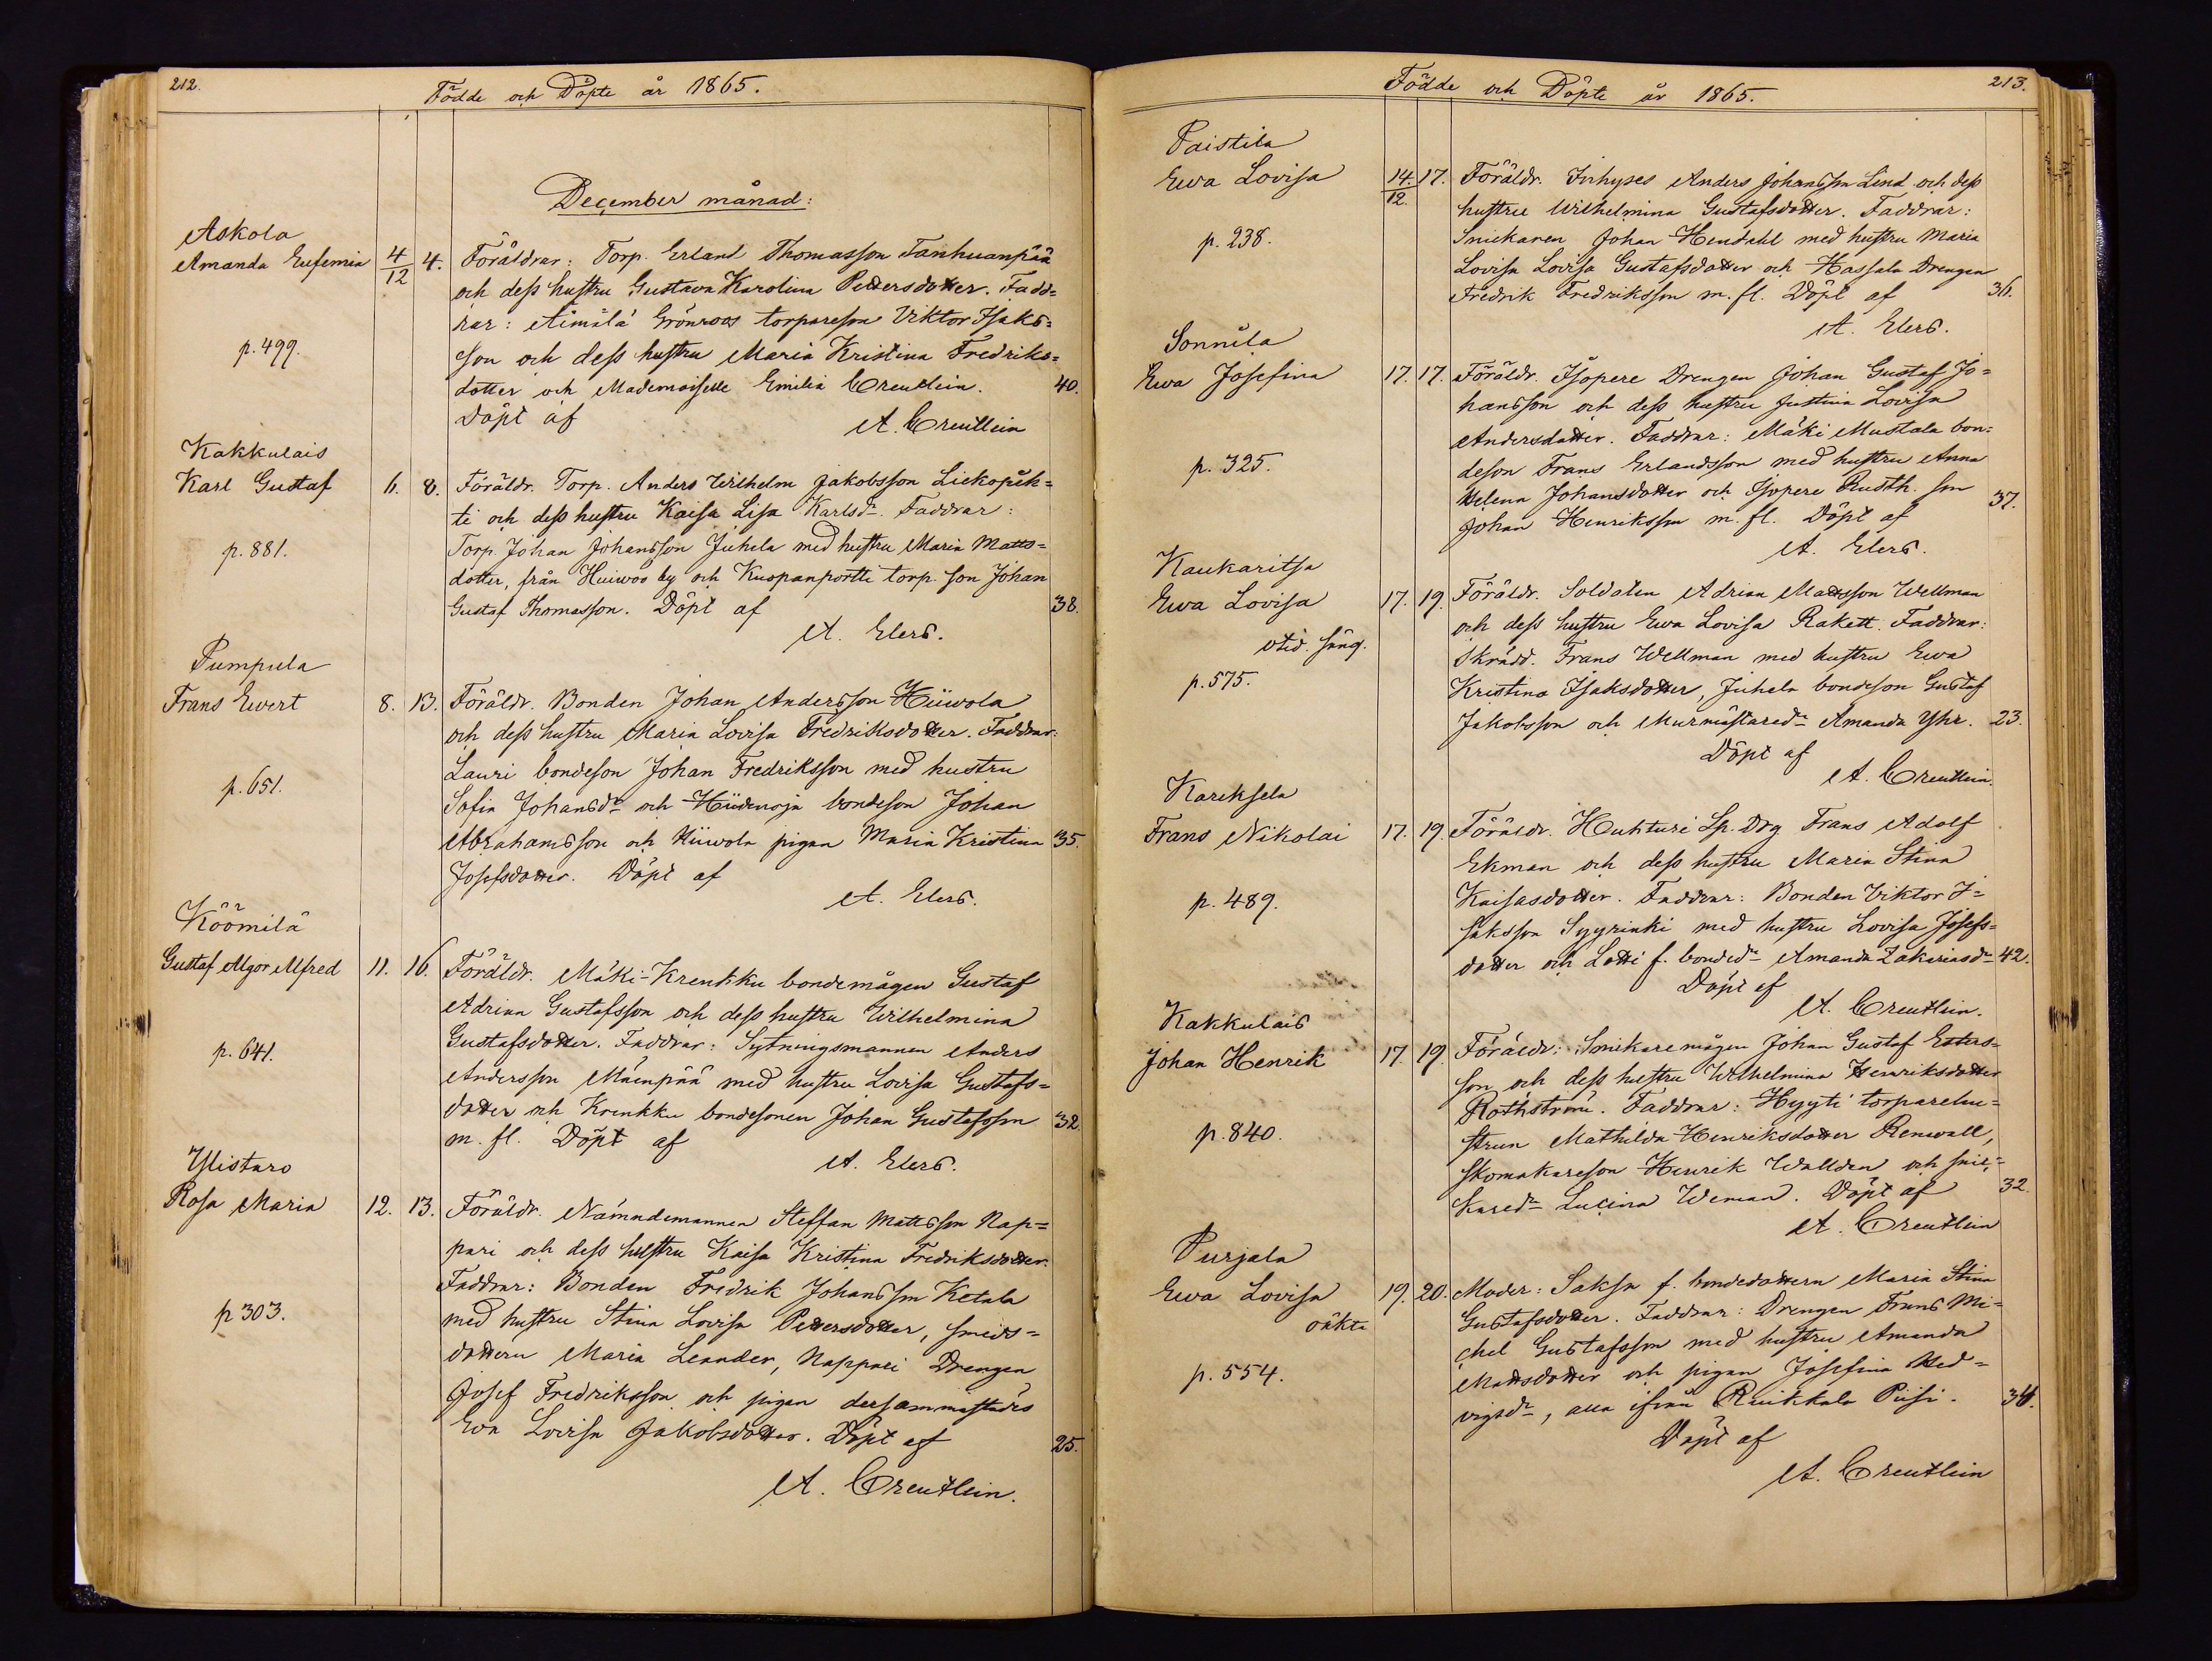 212.
Födde och Döpte år 1865.
December månad:
Askola
Amanda Eufemia 4/12 4. Föräldrar: Torp. Erland Thomasson Tanhuanpää
och dess hustru Gustava Karolina Pettersdotter. Fadd=
rar: Äimälä Grönroos torpareson Viktor Isaks=
p. 499.
son och dess hustru Maria Kristina Fredriks=
dotter och Mademoiselle Emilia Creutlein. 40.
Döpt af
A. Creutlein
Kakkulais
Karl Gustaf 6. 8. Föräldr. Torp. Anders Wilhelm Jakobsson Liekopeh=
ti och dess hustru Kaisa Lisa Karlsdr. Faddrar:
p. 881.
Torp. Johan Johansson Juhela med hustru Maria Matts=
dotter, från Huiwoo by och Kuopanportti torp. son Johan
Gustaf Thomasson. Döpt af 38.
A. Elers.
Pumpula
Frans Ewert 8. 13. Föräldr. Bonden Johan Andersson Hiiwola
och dess hustru Maria Lovisa Fredriksdotter. Faddrar:
Lauri bondeson Johan Fredriksson med hustru
p. 651.
Sofia Johansdr och Hiidenoja bondeson Johan
Abrahamsson och Hiiwola pigan Maria Kristina 35.
Josefsdotter. Döpt af
A. Elers.
Köömilä
Gustaf Algor Alfred 11. 16. Föräldr. Mäki-Krenkku bondemågen Gustaf
Adrian Gustafsson och dess hustru Wilhelmina
Gustafsdotter. Faddrar: Sytningsmannen Anders
p. 641.
Andersson Mäenpää med hustru Lovisa Gustafs=
dotter och Krenkku bondesonen Johan Gustafsson 32.
m. fl. Döpt af
A. Elers.
Ylistaro
Rosa Maria 12. 13. Föräldr. Nämndemannen Steffan Mattsson Nap=
pari och dess hustru Kaisa Kristina Fredriksdotter.
Faddrar: Bonden Fredrik Johansson Ketala
p 303.
med hustru Stina Lovisa Pettersdotter, smeds=
dottern Maria Leander, Nappari Drengen
Josef Fredriksson och pigan dersammastädes
Eva Lovisa Jakobsdotter. Döpt af 25.
A. Creutlein.
Födde och Döpte år 1865.
213.
Paistila
Ewa Lovisa 14./12. 17. Föräldr. Inhyses Anders Johansson Lind och dess
hustru Wilhelmina Gustafsdotter. Faddrar:
p. 238.
Snickaren Johan Hendahl med hustru Maria
Lovisa Lovisa Gustafsdotter och Hassala Drengen
Fredrik Fredriksson m. fl. Döpt af 36.
A. Elers.
Sonnila
Ewa Josefina 17. 17. Föräldr. Isopere Drengen Johan Gustaf Jo=
hansson och dess hustru Justina Lovisa
Andersdotter. Faddrar: Mäki Mustala bon=
p. 325.
deson Frans Erlandsson med hustru Anna
Helena Johansdotter och Isopere Rusth. son
Johan Henriksson m. fl. Döpt af 37.
A. Elers.
Kaukaritsa
Ewa Lovisa 17. 19. Föräldr. Soldaten Adrian Mattsson Wellman
och dess hustru Ewa Lovisa Rakett. Faddrar:
otid. säng.
Skrädd. Frans Wellman med hustru Ewa
p. 575.
Kristina Isaksdotter, Juhela bondeson Gustaf
Jakobsson och Murmästaredr Amanda Yhr. 23.
Döpt af
A. Creutlein.
Kareksela
Frans Nikolai 17. 19. Föräldr. Huhturi Sp. drg Frans Adolf
Ekman och dess hustru Maria Stina
Kaisasdotter. Faddrar: Bonden Viktor I=
p. 489.
saksson Syyrinki med hustru Lovisa Josefs=
dotter och Lotti f. bondedr Amanda Zakariasdr 42.
Döpt af
A. Creutlein.
Kakkulais
Johan Henrik 17. 19. Föräldr: Snickaremågen Johan Gustaf Esters=
son och dess hustru Wilhelmina Henriksdotter
Rothström. Faddrar: Hyyti torparehu=
p. 840.
strun Mathilda Henriksdotter Renwall,
skomakareson Henrik Wallden och snic=
karedr Lucina Weman. Döpt af 32.
A. Creutlein
Purjala
Ewa Lovisa 19. 20. Moder: Saksa f. bondedottern Maria Stina
oäkta
Gustafsdotter. Faddrar: Drengen Frans Mi=
chel Gustafsson med hustru Amanda
p. 554.
Mattsdotter och pigan Josefina Hed=
vigsdr, alla ifrån Ruikkala Piisi. 34.
Döpt af
A. Creutlein